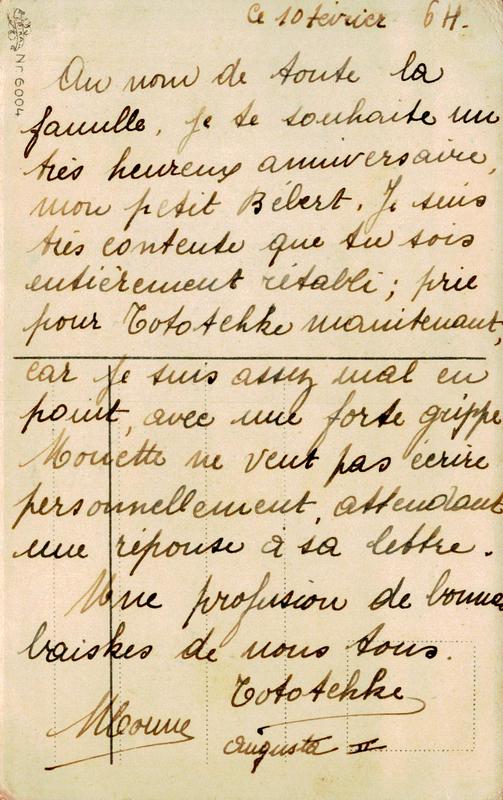 Ce 10 février 64.
Nr 6004
Au nom de toute la
famille, je te souhaite un
très heureux anniversaire,
mon petit Bébert. Je suis
très contente que tu sois
entièrement rétabli ; prie
pour Tototchke maintenant,
car je suis assez mal en
point, avec une forte grippe
Mouette ne veut pas écrire
personnellement, attendant
une réponse à sa lettre.
Une profusion de bonnes
baiskes de nous tous.
Tototchke
Augusta II